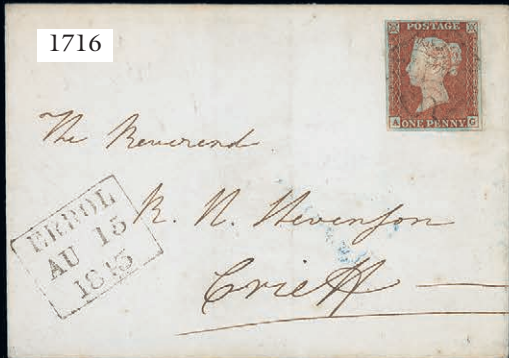 1716
POSTAGE
A ONE PENNY G
The Reverend
R. N. Stevenson
Crieff
ERROL
AU 15